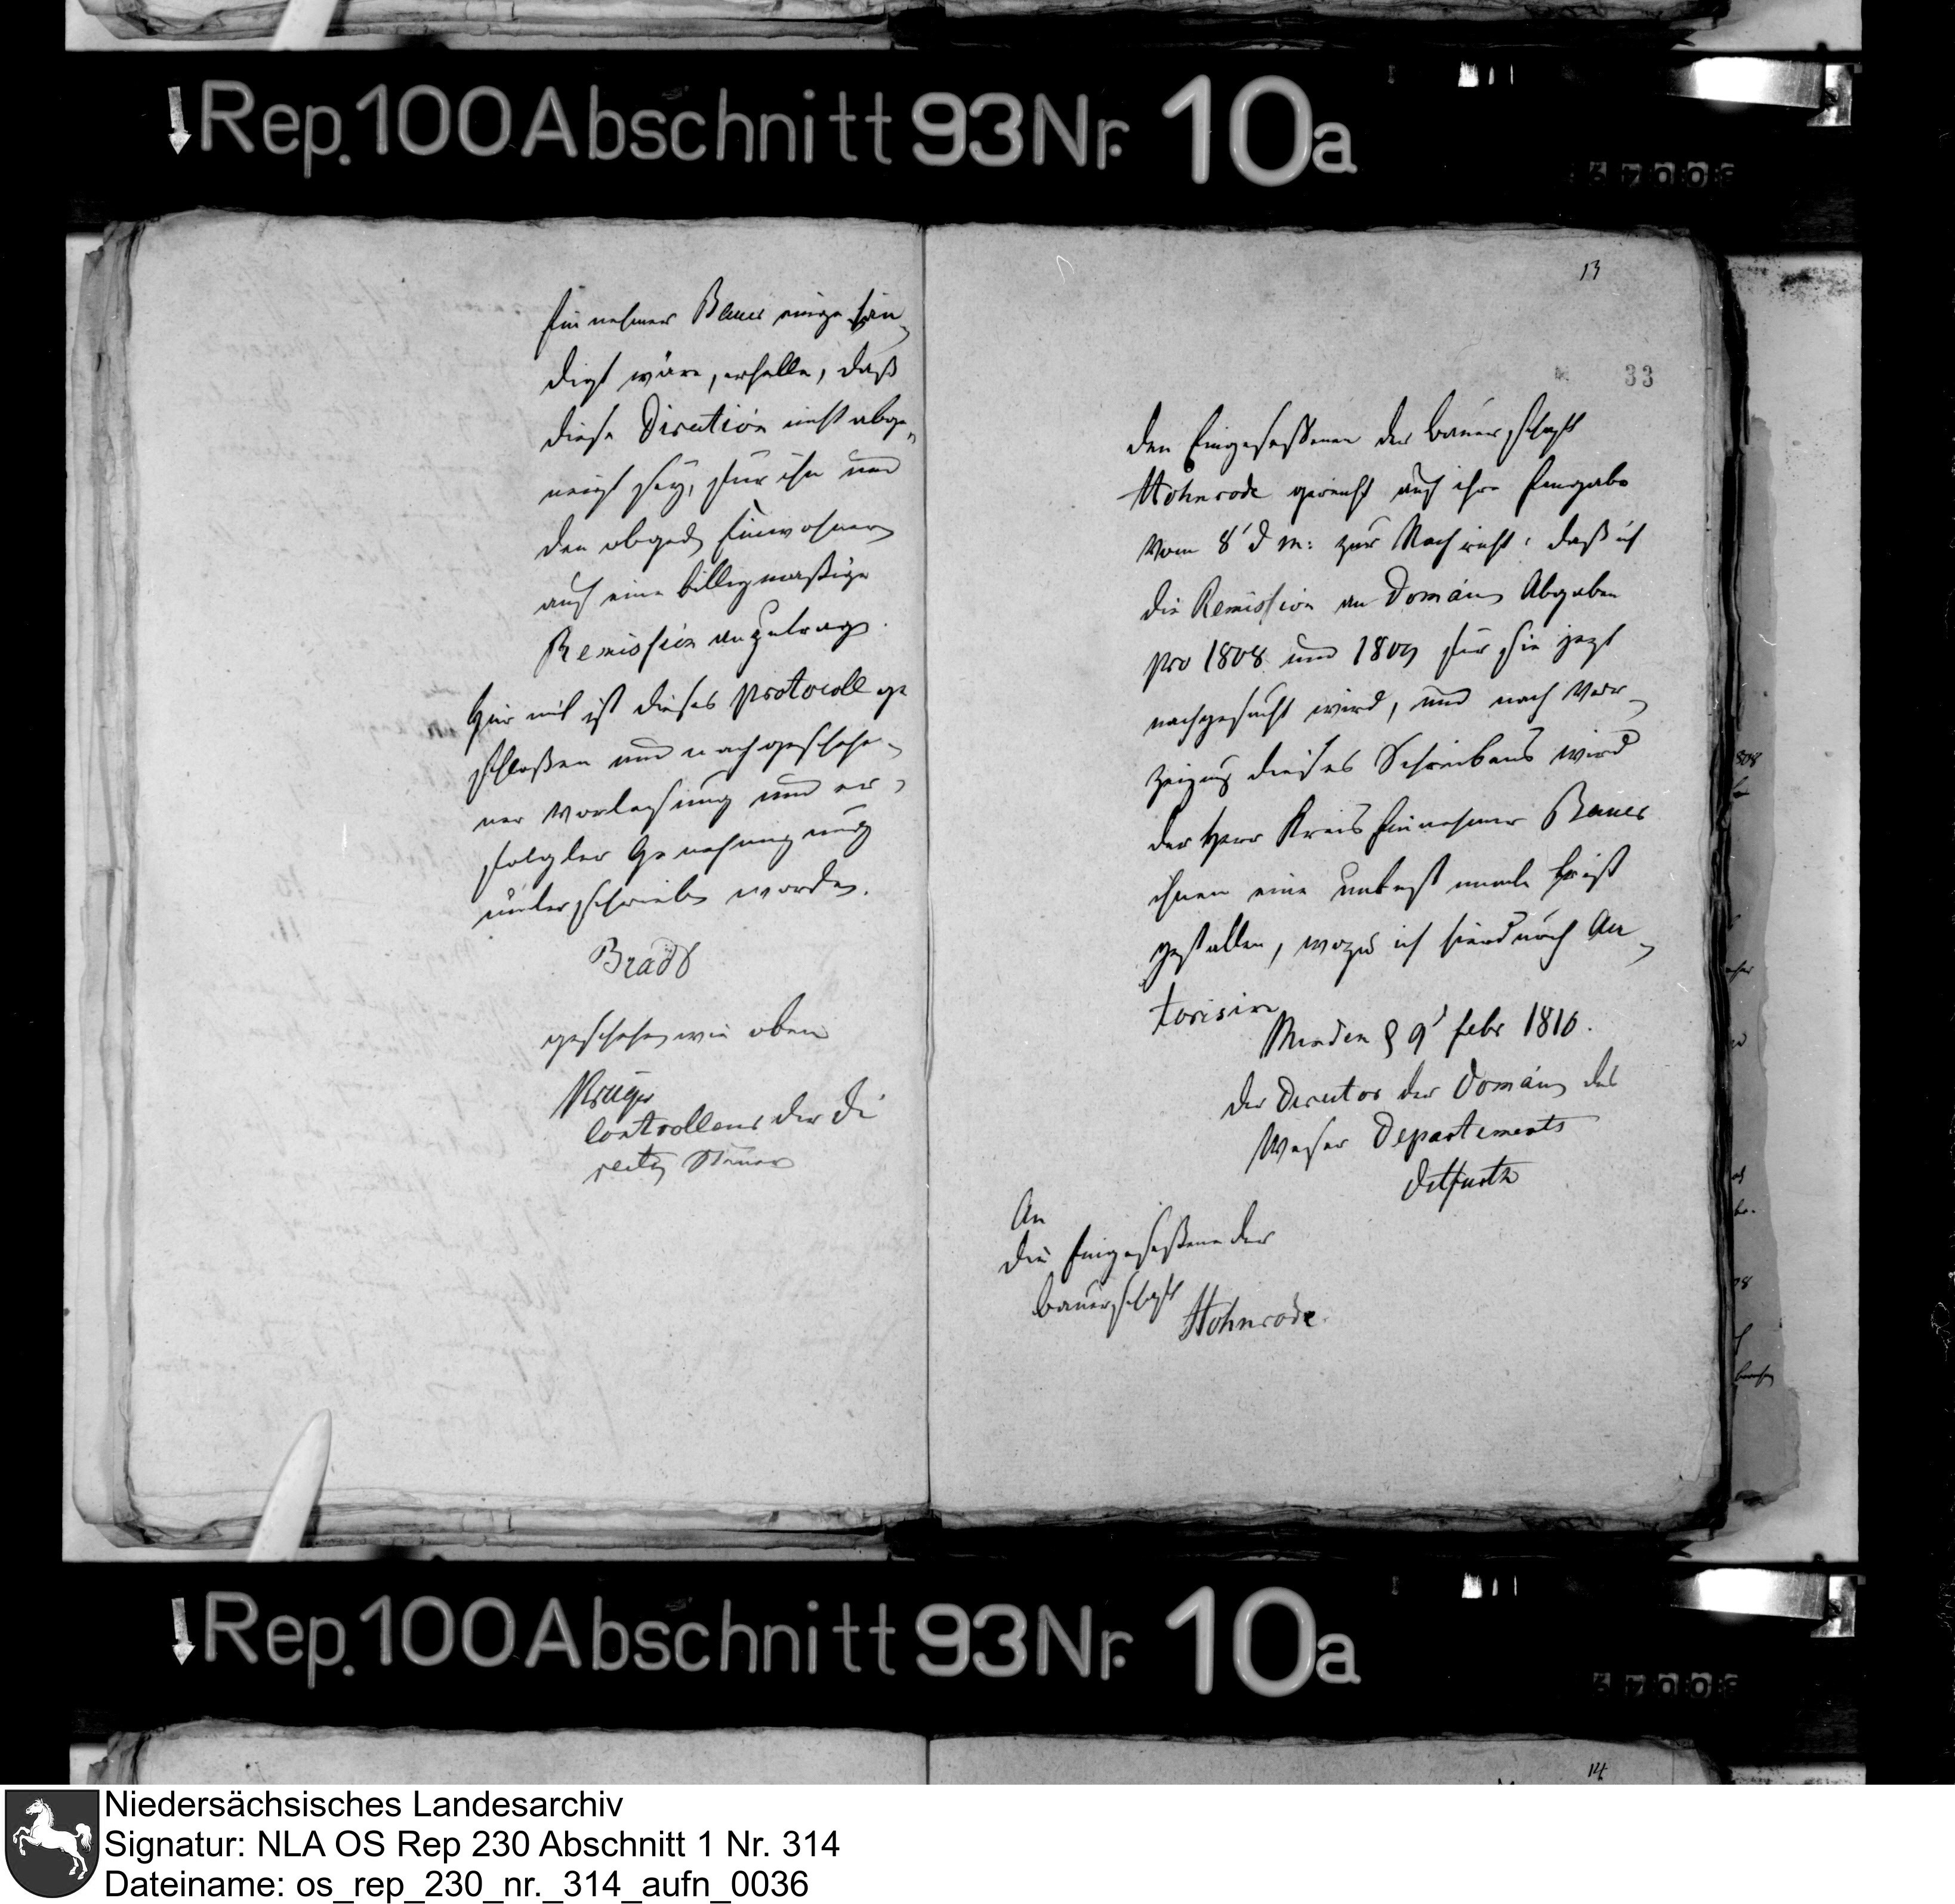 Rep. 100 Abschnitt 93 Nr. 10a
Einnehmer Baues eingehän
digt wäre, erhelle, daß
diese Direction nicht abge„
neigt sey, für ihn und
den obged Einwohner
auf eine billigmäßige
Remission anzutragen.
Hiermit ist dieses Protocoll ge
schloßen und nach geschehe„
ner Vorlesung und er„
folgter Genehmigung
unterschrieben worden.
Bradt
geschehen wie oben
Krüger
Controlleur der di
recten Steuer
13
33
Den Eingeseßenen der Bauerschaft
Hohnrode gereicht auf ihre Eingabe
vom 8t d M: zur Nachricht, daß ich
die Remission an Domain Abgaben
pro 1808 und 1809 für sie jezt
nachgesucht wird, und nach Vor„
zeigung dieses Schreibens wird
der Herr Kreis Einnehmer Baues
ihnen eine unbestimmte Frist
gestatten, wozu ich hierdurch Au„
torisire
Minden d 9t Febr 1810.
der Director der Domain des
Weser Departements
Ditfurth
An
die Eingeseßene der
Bauerschaft Hohnrode.
Rep. 100 Abschnitt 93 Nr. 10a
14
Niedersächsisches Landesarchiv
Signatur: NLA OS Rep 230 Abschnitt 1 Nr. 314
Dateiname: os_rep_230_nr._314_aufn_0036